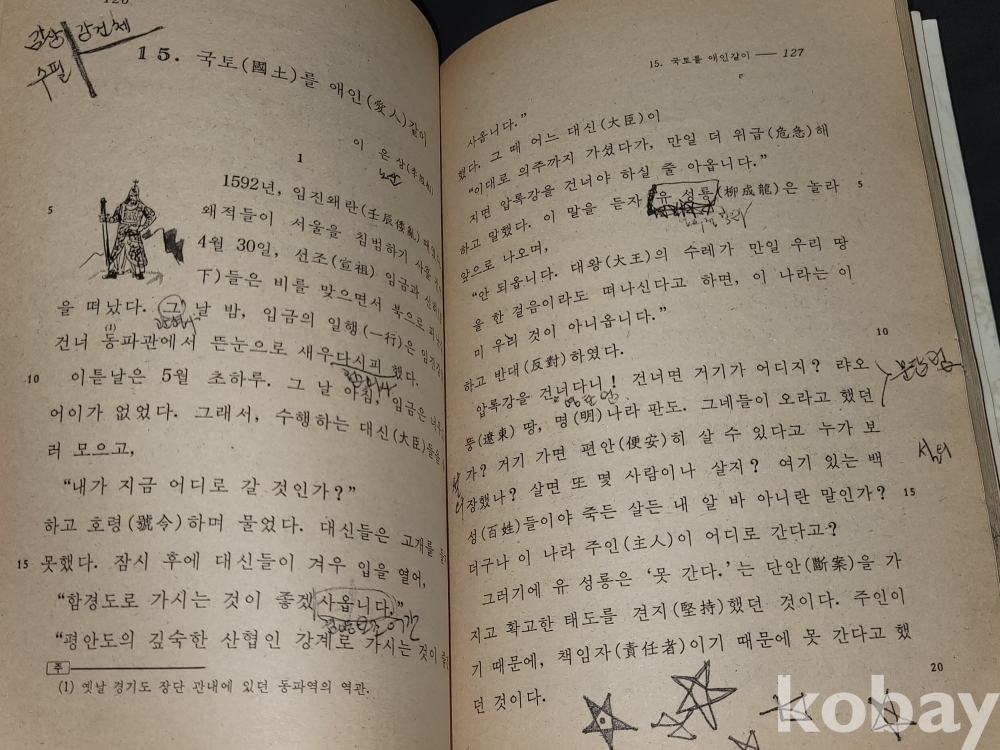 126
감상 강건체
수필
15. 국토(國土)를 애인(愛人)같이
이 은 상(李殷相)
노산
1
1592년, 임진왜란(壬辰倭亂) 때였
5 왜적들이 서울을 침범하기 사흘 전
4월 30일, 선조(宣祖) 임금과 신하(
下)들은 비를 맞으면서 북으로 피난
을 떠났다. 그 날 밤, 임금의 일행(一行)은 임진강
건너 동파관에서 뜬눈으로 새우다시피 했다.
(1)
10 이튿날은 5월 초하루. 그 날 아침, 임금은
어이가 없었다. 그래서, 수행하는 대신(大臣)들을
러 모으고,
“내가 지금 어디로 갈 것인가?”
하고 호령(號令)하며 물었다. 대신들은 고개를
15 못했다. 잠시 후에 대신들이 겨우 입을 열어,
“함경도로 가시는 것이 좋겠사옵니다.”
“평안도의 깊숙한 산협인 강계로 가시는 것이
주
(1) 옛날 경기도 장단 관내에 있던 동파역의 역관.
15. 국토를 애인같이 — 127
사옵니다.”
했다. 그 때 어느 대신(大臣)이
“이대로 의주까지 가셨다가, 만일 더 위급(危急)해
지면 압록강을 건너야 하실 줄 아옵니다.”
하고 말했다. 이 말을 듣자 유 성룡(柳成龍)은 놀라 5
앞으로 나오며,
“안 되옵니다. 대왕(大王)의 수레가 만일 우리 땅
을 한 걸음이라도 떠나신다고 하면, 이 나라는 이
미 우리 것이 아니옵니다.”
하고 반대(反對)하였다. 10
압록강을 건너다니! 건너면 거기가 어디지? 랴오
뚱(遼東) 땅, 명(明)나라 판도. 그네들이 오라고 했던
가? 거기 가면 편안(便安)히 살 수 있다고 누가 보
장했나? 살면 또 몇 사람이나 살지? 여기 있는 백
성(百姓)들이야 죽든 살든 내 알 바 아니란 말인가? 15
더구나 이 나라 주인(主人)이 어디로 간다고?
그러기에 유 성룡은 ‘못 간다.’는 단안(斷案)을 가
지고 확고한 태도를 견지(堅持)했던 것이다. 주인이
기 때문에, 책임자(責任者)이기 때문에 못 간다고 했
던 것이다. 20
kobay